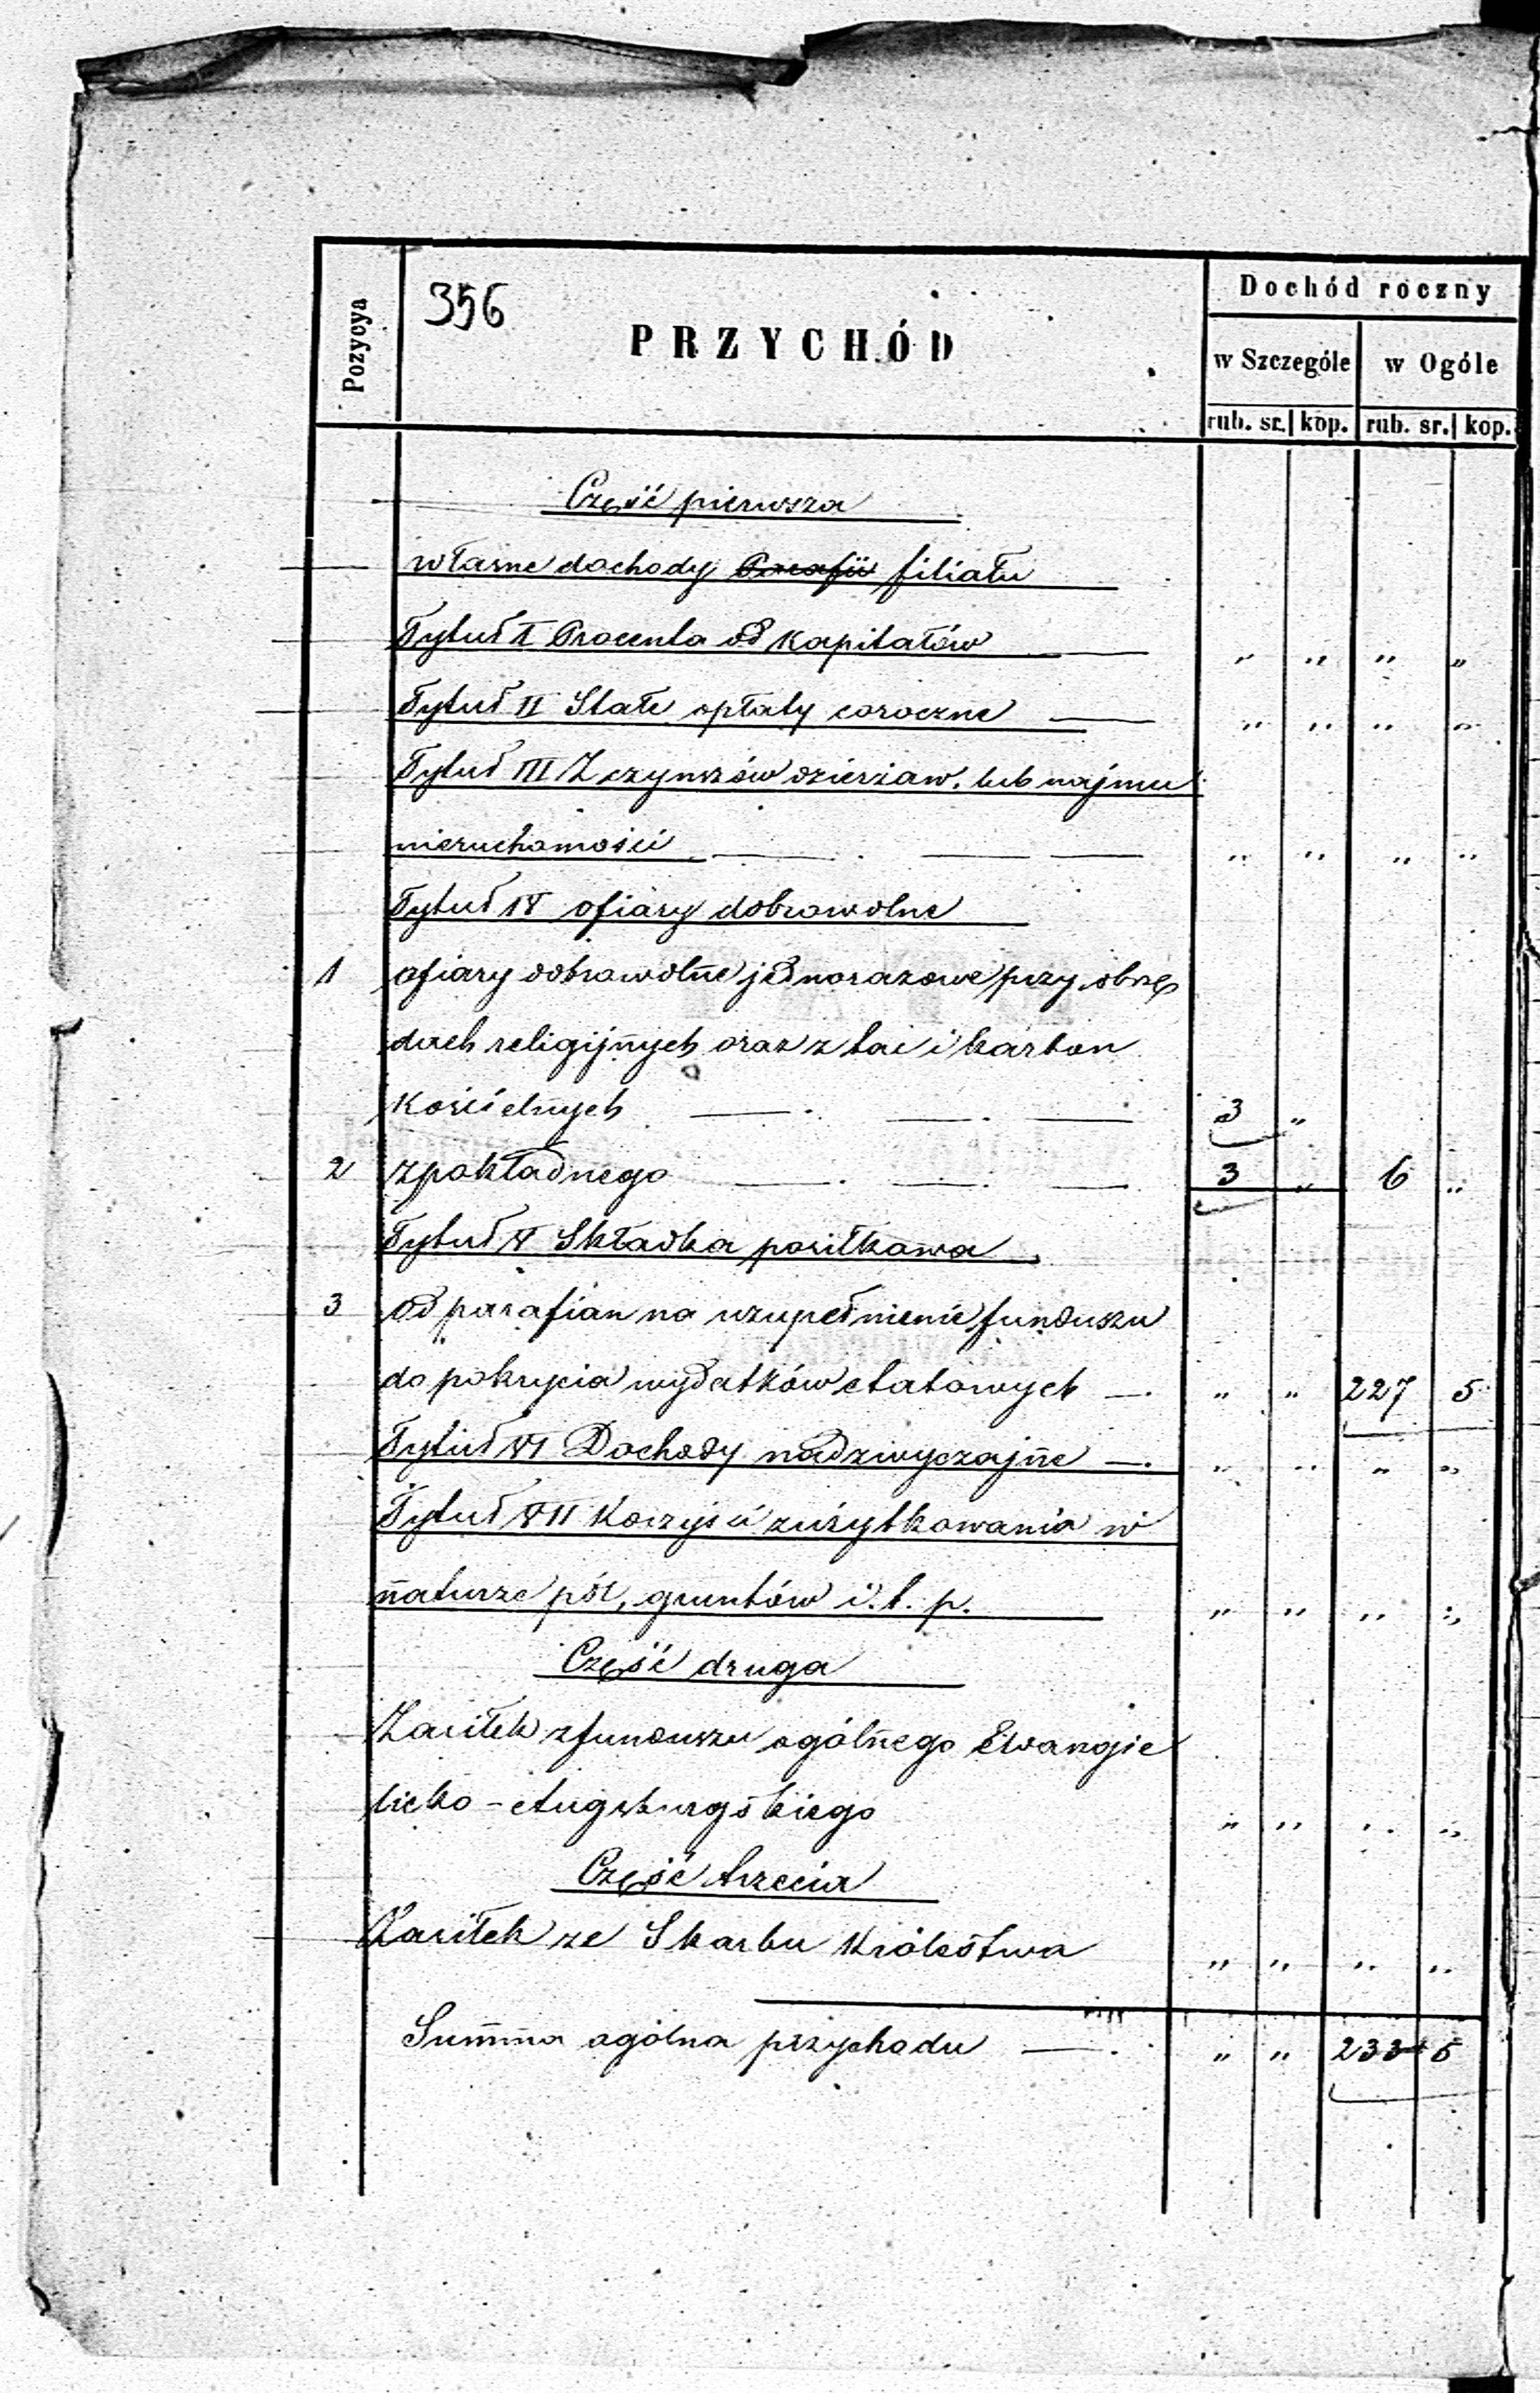 356
Pozycya
PRZYCHÓD
Dochód roczny
w Szczególe w Ogóle
rub. sr. kop. rub. sr. kop.
Część pierwsza
własne dochody Parafii filiału
Tytuł I Procenta od kapitałów „ „ „ „
Tytuł II Stałe opłaty coroczne „ „ „ „
Tytuł III Z czynszów dzierżaw. lub najmu
nieruchomości „ „ „ „
Tytuł IV ofiary dobrowolne
1 ofiary dobrowolne jednorazowe przy obrzę
dach religijnych oraz z tac i karbon
kościelnych 3 „
2 z pokładnego 3 „ 6 „
Tytuł V Składka posiłkowa
3 od parafian na uzupełnienie funduszu
do pokrycia wydatków etatowych „ „ 227 5
Tytuł VI Dochody nadzwyczajne „ „ „ „
Tytuł VII Korzyści zużytkowania w
naturze pól, gruntów i. t. p. „ „ „ „
Część druga
Zasiłek z funduszu ogólnego Ewangie
licko-Augsburgskiego „ „ „ „
Część trzecia
Zasiłek ze Skarbu Królestwa „ „ „ „
Summa ogólna przychodu „ „ 233 5